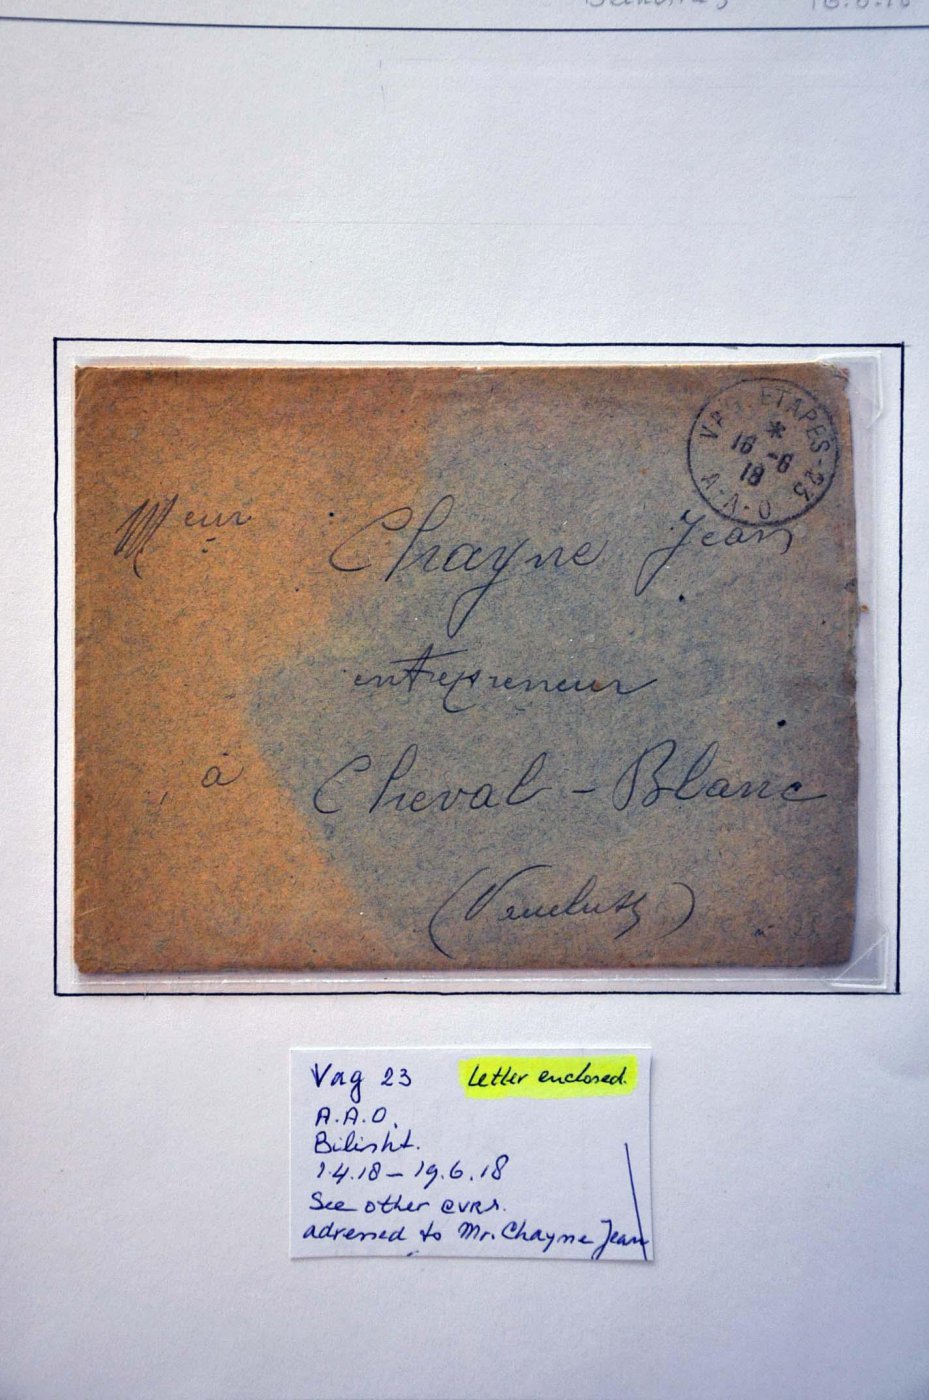 16.6.18
VAG. ETAPES-23
*
16 -6
18
A-A-O
Meur Chayne Jean
entrepreneur
à Cheval-Blanc
(Vaucluse)
Vag 23 Letter enclosed.
A.A.O.
Bilisht.
1.4.18 – 19.6.18
See other cvrs.
adressed to Mr. Chayne Jean